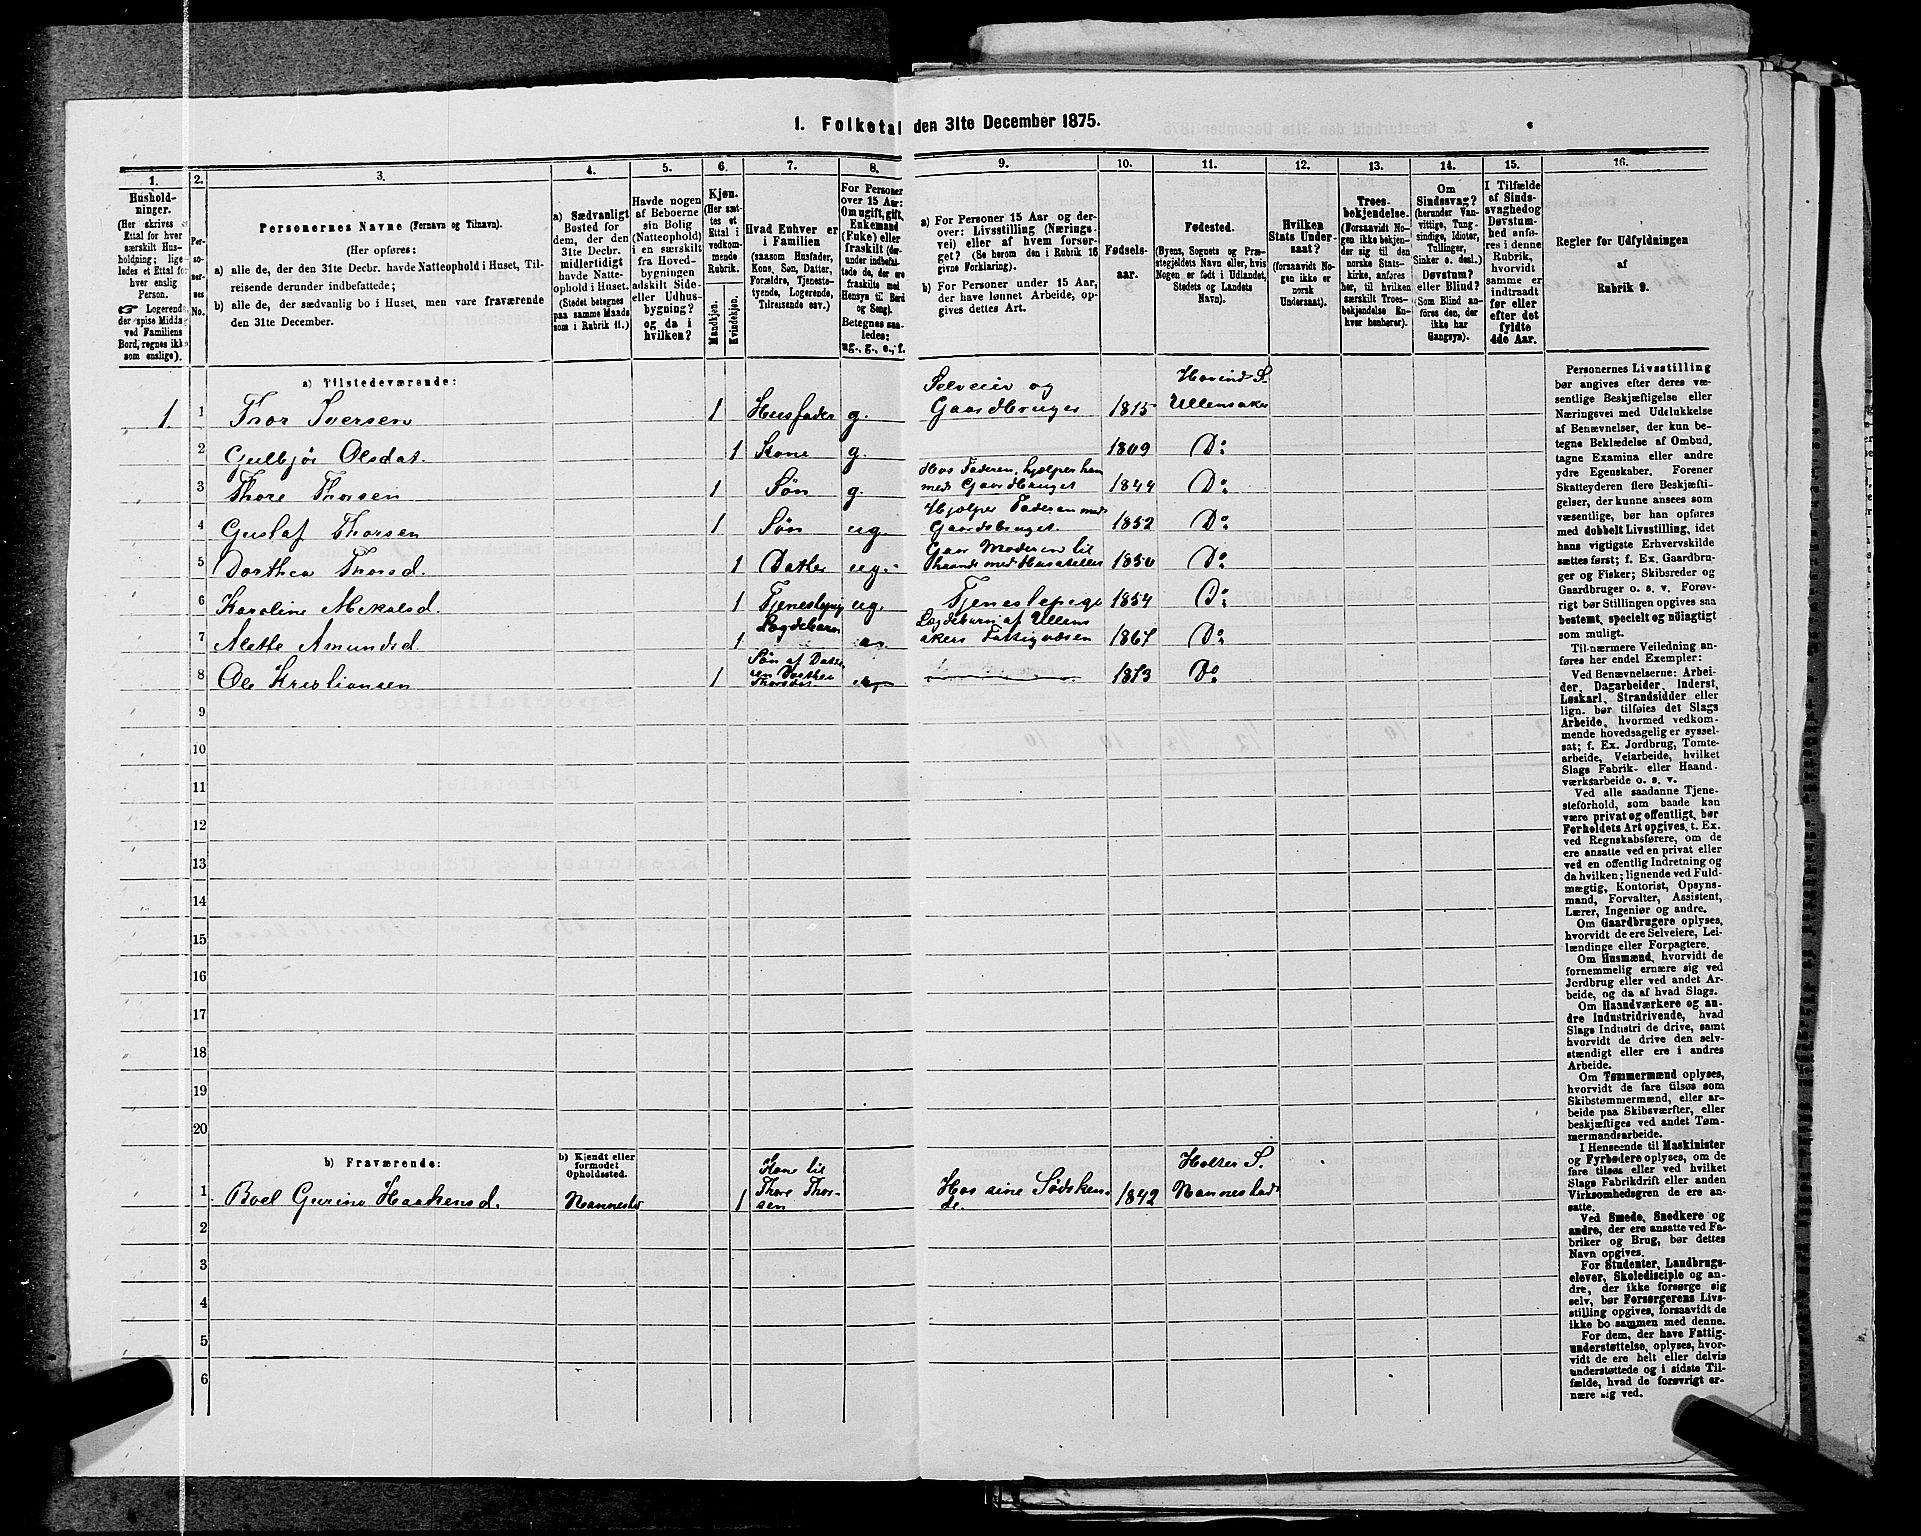 1. Folketal den 31te December 1875.
1.
Hushold-
ninger.
(Her skrives et
Ettal for hver
særskilt Hus-
holdning; lige-
ledes et Ettal for
hver enslig
Person.
☞ Logerende,
der spise Middag
ved Familiens
Bord, regnes ikke
som enslige).
2.
Per-
so-
ner-
nes
No.
3.
Personernes Navne (Fornavn og Tilnavn).
(Her opføres:
a) alle de, der den 31te Decbr. havde Natteophold i Huset, Til-
reisende derunder indbefattede;
b) alle de, der sædvanlig bo i Huset, men vare fraværende
den 31te December.
4.
a) Sædvanligt
Bosted for
dem, der den
31te Decbr.
midlertidigt
havde Natte-
ophold i Huset.
(Stedet betegnes
paa samme Maade
som i Rubrik 11.)
5.
Havde nogen
af Beboerne
sin Bolig
(Natteophold)
i en særskilt
fra Hoved-
bygningen
adskilt Side-
eller Udhus-
bygning?
og da i
hvilken?
6.
Kjøn.
(Her sæt-
tes et
Ettal i
vedkom-
mende
Rubrik.
Mandkjøn.
Kvindekjøn.
7.
Hvad Enhver er
i Familien
(saasom Husfader,
Kone, Søn, Datter,
Forældre, Tjeneste-
tyende, Logerende,
Tilreisende osv.)
8.
For Personer
over 15 Aar:
Om ugift, gift,
Enkemand
(Enke) eller
fraskilt (der-
under indbefat-
tede de, der ere
fraskilte med
Hensyn til Bord
og Seng).
Betegnes saa-
ledes:
ug., g., e., f.
9.
a) For Personer 15 Aar og der-
over: Livsstilling (Nærings-
vei) eller af hvem forsør-
get? (Se herom den i Rubrik 16
givne Forklaring).
b) For Personer under 15 Aar,
der have lønnet Arbeide, op-
gives dettes Art.
10.
Fødsels-
aar.
11.
Fødested.
(Byens, Sognets og Præ-
stegjeldets Navn eller, hvis
Nogen er født i Udlandet,
Stedets og Landets
Navn).
12.
Hvilken
Stats Under-
saat?
(forsaavidt No-
gen ikke er
norsk
Undersaat).
13.
Troes-
bekjendelse.
(Forsaavidt No-
gen ikke bekjen-
der sig til den
norske Stats-
kirke, anføres
her, til hvilken
særskilt Troes-
bekjendelse En-
hver henhører).
14.
Om
Sindssvag?
(herunder Van-
vittige, Tung-
sindige, Idioter,
Tullinger,
Sinker o. desl.)
Døvstum?
eller Blind?
(Som Blind an-
føres den, der
ikke har
Gangsyn).
15.
I Tilfælde
af Sinds-
svaghed og
Døvstum-
hed anfø-
res i denne
Rubrik,
hvorvidt
samme er
indtraadt
før eller
efter det
fyldte
4de Aar.
16.
Regler for Udfyldningen
af
Rubrik 9.
a) Tilstedeværende:
1 1 Thor Iversen 1 Husfader g. Selveier og Gaardbruger 1815 Hovind S. Ullensaker
2 Gulbjør Olsdat. 1 Kone g. 1809 Do
3 Thore Thorsen 1 Søn g. Hos Faderen, hjælper ham med Gaardbruget 1844 Do
4 Gustaf Thorsen 1 Søn ug. Hjælper Faderen med Gaardsbruget. 1852 Do
5 Dorthea Thorsd. 1 Datter ug. Gaar Moderen til haande med Husstellet 1850 Do
6 Karoline Mekalsd. 1 Tjenestepig ug. Tjenestepige 1854 Do
7 Alette Amundsd. 1 Lægdebarn Lægdebarn af Ullensakers Fattigvæsen 1867 Do
8 Ole Kristiansen 1 Søn af Datteren Dorthea Thorsdat 1873 Do
9
10
11
12
13
14
15
16
17
18
19
20
b) Fraværende:
b) Kjendt eller
formodet
Opholdssted.
1 Boel Gurine Haakensd. Nannestad 1 Kone til Thore Thorsen Hos sine Sødskende. 1842 Holter S. Nannestad
2
3
4
5
6
Personernes Livsstilling
bør angives efter deres væ-
sentlige Beskjæftigelse eller
Næringsvei med Udelukkelse
af Benævnelser, der kun be-
tegne Beklædelse af Ombud,
tagne Examina eller andre
ydre Egenskaber. Forener
Skatteyderen flere Beskjæfti-
gelser, der kunne ansees som
væsentlige, bør han opføres
med dobbelt Livsstilling, idet
hans vigtigste Erhvervskilde
sættes først; f. Ex. Gaardbru-
ger og Fisker; Skibsreder og
Gaardbruger o. s. v. Forøv-
rigt bør Stillingen opgives saa
bestemt, specielt og nøiagtigt
som muligt.
Til nærmere Veiledning an-
føres her endel Exempler:
Ved Benævnelserne: Arbei-
der, Dagarbeider, Inderst,
Løskarl, Strandsidder eller
lign. bør tilføies det Slags
Arbeide, hvormed vedkom-
mende hovedsagelig er syssel-
sat; f. Ex. Jordbrug, Tomte-
arbeide, Veiarbeide, hvilket
Slags Fabrik- eller Haand-
værksarbeide o. s. v.
Ved alle saadanne Tjene-
steforhold, som baade kan
være privat og offentligt, bør
Forholdets Art opgives, t. Ex.
ved Regnskabsførere, om de
ere ansatte ved en privat eller
ved en offentlig Indretning og
da hvilken; lignende ved Fuld-
mægtig, Kontorist, Opsyns-
mand, Forvalter, Assistent,
Lærer, Ingeniør og andre.
Om Gaardbrugere oplyses,
hvorvidt de ere Selveiere, Lei-
lændinge eller Forpagtere.
Om Husmænd, hvorvidt de
fornemmelig ernære sig ved
Jordbrug eller ved andet Ar-
beide, og da af hvad Slags.
Om Haandværkere og an-
dre Industridrivende, hvad
Slags Industri de drive, samt
hvorvidt de drive den selv-
stændigt eller ere i andres
Arbeide.
Om Tømmermænd oplyses,
hvorvidt de fare tilsøs som
Skibstømmermænd, eller ar-
beide paa Skibsværfter, eller
beskjæftiges ved andet Tøm-
mermandsarbeide.
I Henseende til Maskinister
og Fyrbødere oplyses, om de
fare tilsøs eller ved hvilket
Slags Fabrikdrift eller anden
Virksomhedsgren de ere an-
satte.
Ved Smede, Snedkere og
andre, der ere ansatte ved Fa-
briker og Brug, bør dettes
Navn opgives.
For Studenter, Landbrugs-
elever, Skoledisciple og an-
dre, der ikke forsørge sig
selv, bør Forsørgerens Livs-
stilling opgives, forsaavidt de
ikke bo sammen med denne.
For dem, der have Fattig-
understøttelse, oplyses, hvor-
vidt de ere helt eller delvis
understøttede og i sidste Til-
fælde, hvad de forøvrigt er-
nære sig ved.